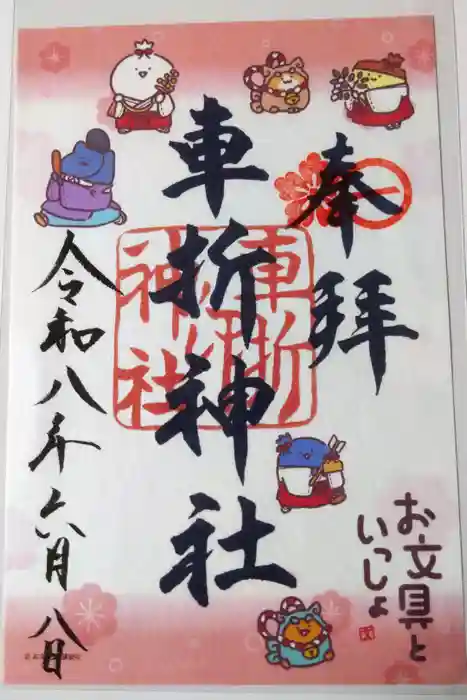 奉拝
車折神社
車折神社
令和八年六月八日
お文具と
いっしょ